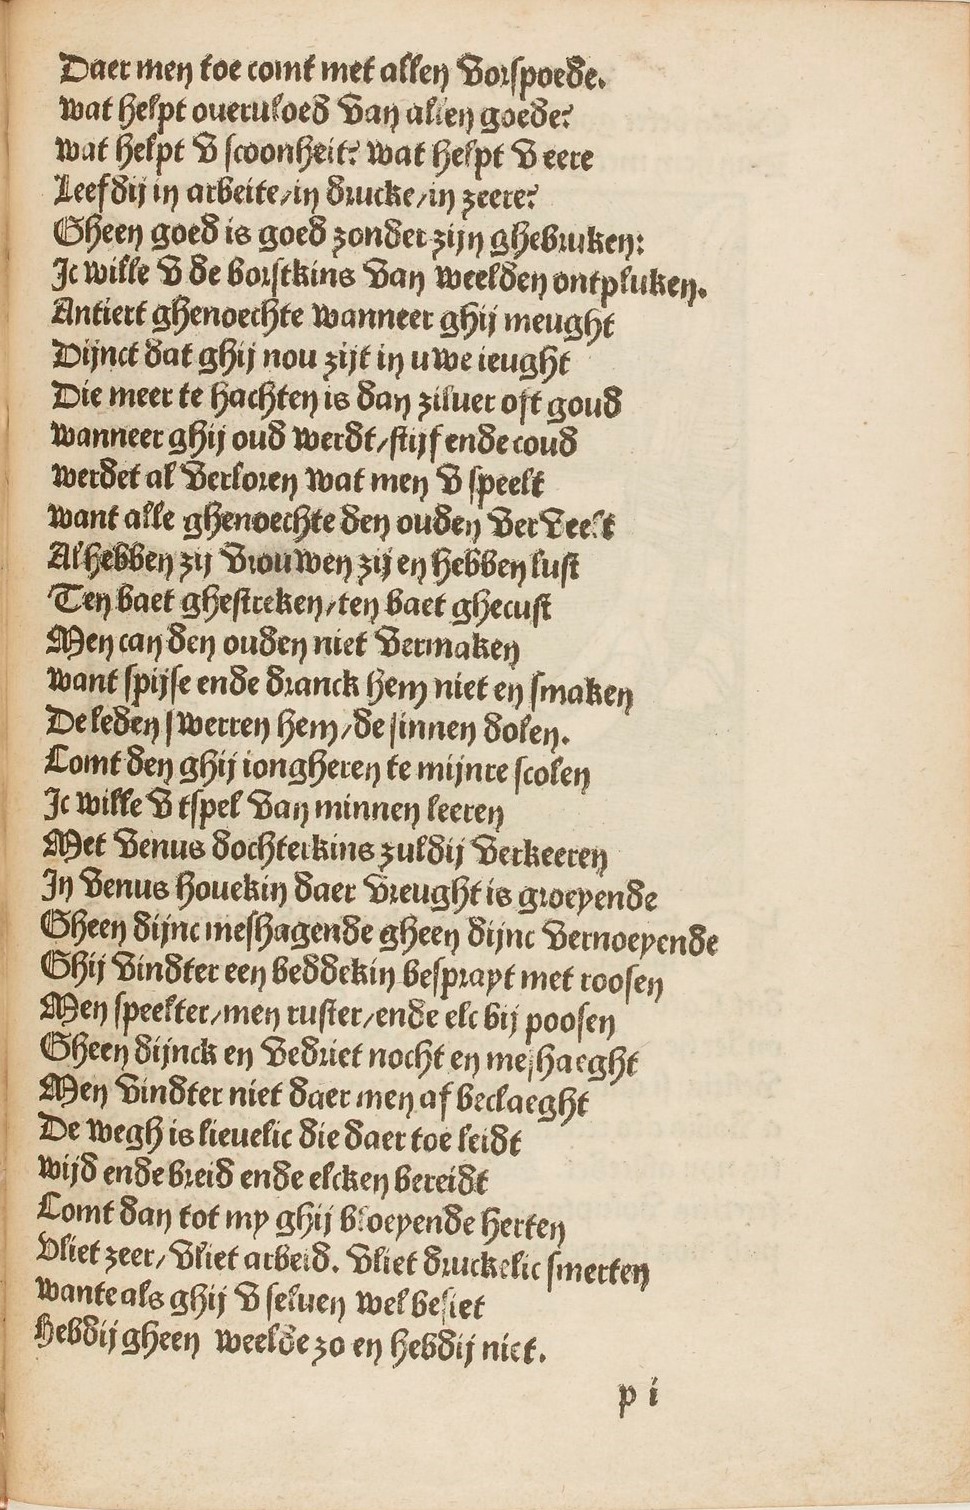 Daer men toe comt met allen vorspoede.
wat helpt oueruloed van allen goede?
wat helpt v scoonheit? wat helpt v eere
Leefdij in arbeite/in drucke/in zeere?
Gheen goed is goed zonder zijn ghebruken:
Ic wille v de borstkins van weelden ontpluken.
Antiert ghenoechte wanneer ghij meught
Dijnct dat ghij nou zijt in uwe ieught
Die meer te hachten is dan ziluer oft goud
wanneer ghij oud werdt/stijf ende coud
werdet al verloren wat men v speelt
want alle ghenoechte den ouden verveelt
Al hebben zij vrouwen zij en hebben lust
Ten baet ghestreken/ten baet ghecust
Men can den ouden niet vermaken
want spijse ende dranck hem niet en smaken
De leden swerren hem/de sinnen dolen.
Comt den ghij iongheren te mijnre scolen
Ic wille v tspel van minnen leeren
Met venus dochterkins zuldij verkeeren
In venus houekin daer vreught is groeyende
Gheen dijnc meshagende gheen dijnc vernoeyende
Ghij vindter een beddekin besprayt met roosen
Men speelter/men ruster/ende elc bij poosen
Gheen dijnck en vedriet nocht en meshaeght
Men vindter niet daer men af beclaeght
De wegh is lieuelic die daer toe leidt
wijd ende breid ende elcken bereidt
Comt dan tot my ghij bloeyende herten
vliet zeer/vliet arbeid. vliet druckelic smerten
wante als ghij v seluen wel besiet
Hebdij gheen weelde zo en hebdij niet.
p i